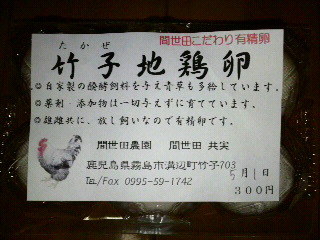 間世田こだわり有精卵
たかぜ
竹子地鶏卵
◎自家製の醗酵飼料を与え青草も多給しています。
◎薬剤・添加物は一切与えずに育てています。
◎雄雌共に、放し飼いなので有精卵です。
間世田農園 間世田 共実
鹿児島県霧島市溝辺町竹子703
TEL/Fax 0995-59-1742
5月1日
300円